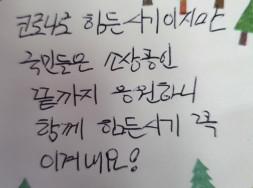 코로나로 힘든시기이지만
국민들은 소상공인
끝까지 응원하니
함께 힘든시기 꼭
이겨내요!